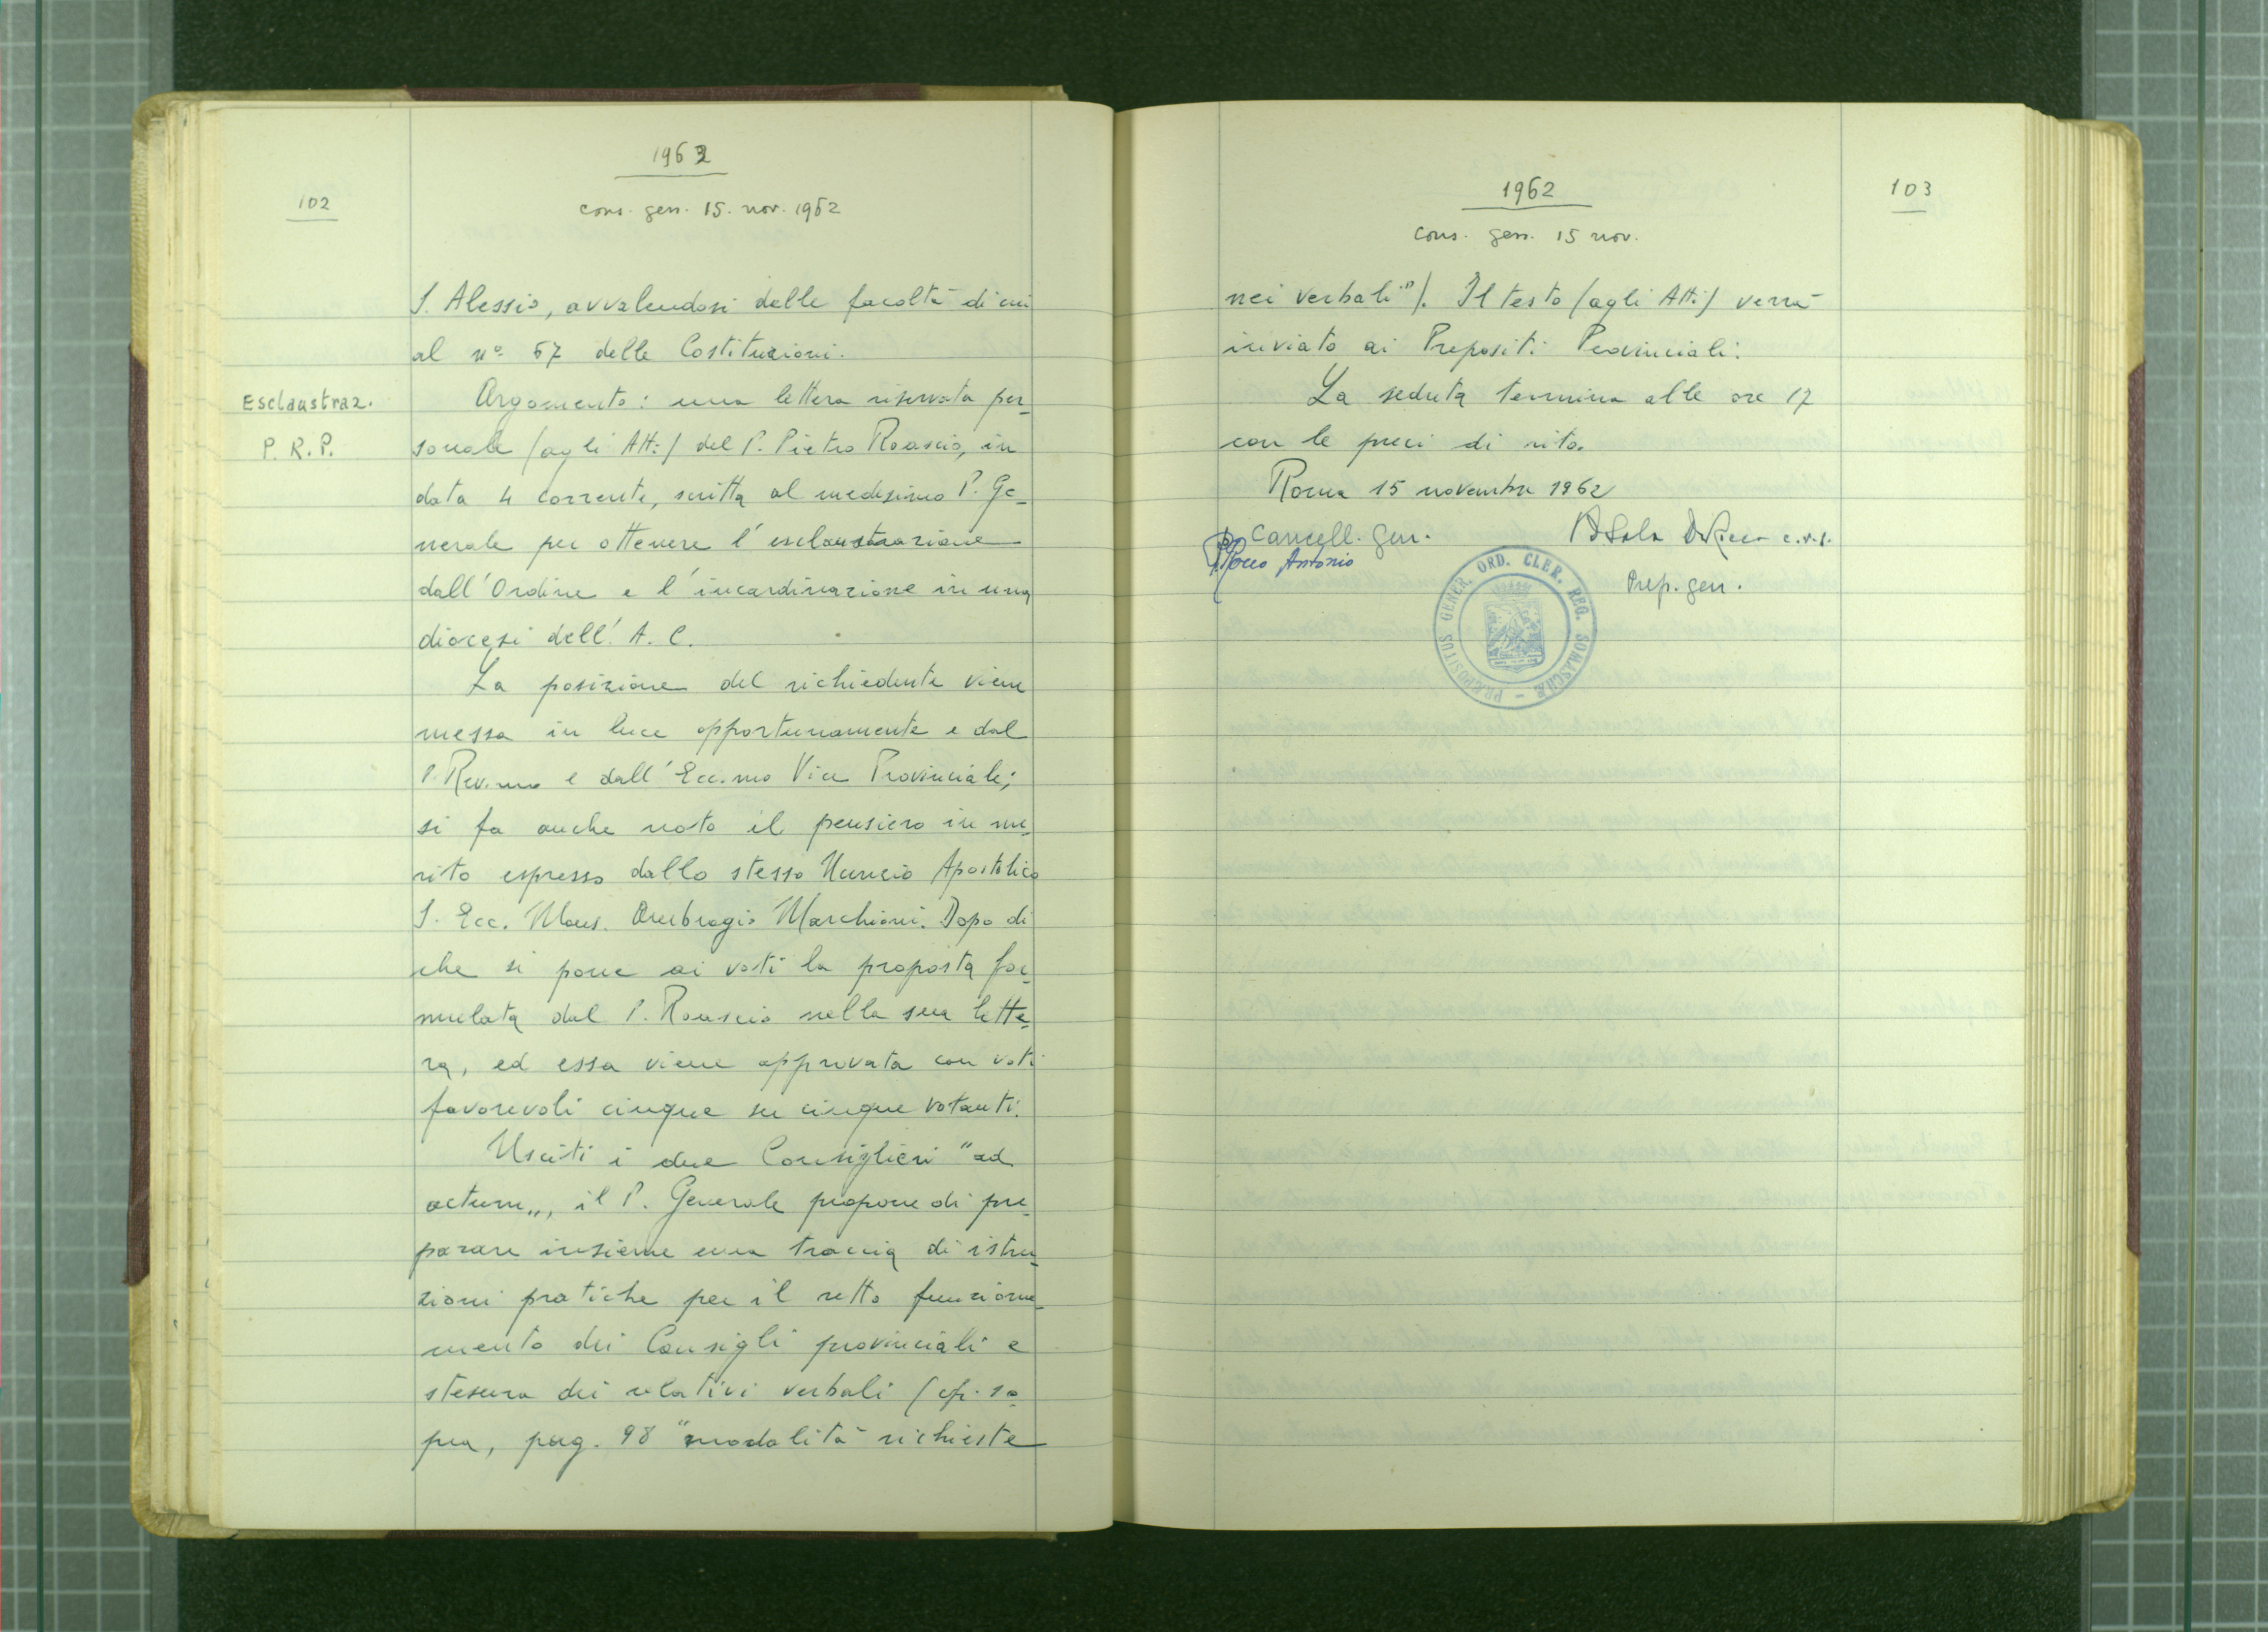 1962
102
cons. gen. 15. nov. 1962
S. Alessio, avvalendosi delle facoltà di cui
al nº 67 delle Costituzioni.
Esclaustraz.
P. R. P.
Argomento: una lettera riservata per-
sonale (agli Atti) del P. Pietro Roascio, in
data 4 corrente, scritta al medesimo P. Ge-
nerale per ottenere l'esclaustrazione
dall'Ordine e l'incardinazione in una
diocesi dell'A. C.
La posizione del richiedente viene
messa in luce opportunamente e dal
P. Rev.mo e dall'Ecc.mo Vice Provinciale;
si fa anche noto il pensiero in me-
rito espresso dallo stesso Nunzio Apostolico
S. Ecc. Mons. Ambrogio Marchioni. Dopo di
che si pone ai voti la proposta for-
mulata dal P. Roascio nella sua lette-
ra, ed essa viene approvata con voti
favorevoli cinque su cinque votanti.
Usciti i due Consiglieri "ad
actum", il P. Generale propone di pre-
parare insieme una traccia di istru-
zioni pratiche per il retto funziona-
mento dei Consigli provinciali e
stesura dei relativi verbali (cfr. so-
pra, pag. 98 "modalità richieste
1962
103
cons. gen. 15 nov.
nei verbali"). Il testo (agli Atti) verrà
inviato ai Prepositi Provinciali.
La seduta termina alle ore 17
con le preci di rito.
Roma 15 novembre 1962
Cancell. Gen.
P. Rocco Antonio
c.r.s.
Prep. gen.
PRÆPOSITUS GENER. ORD. CLER. REG. SOMASCHÆ